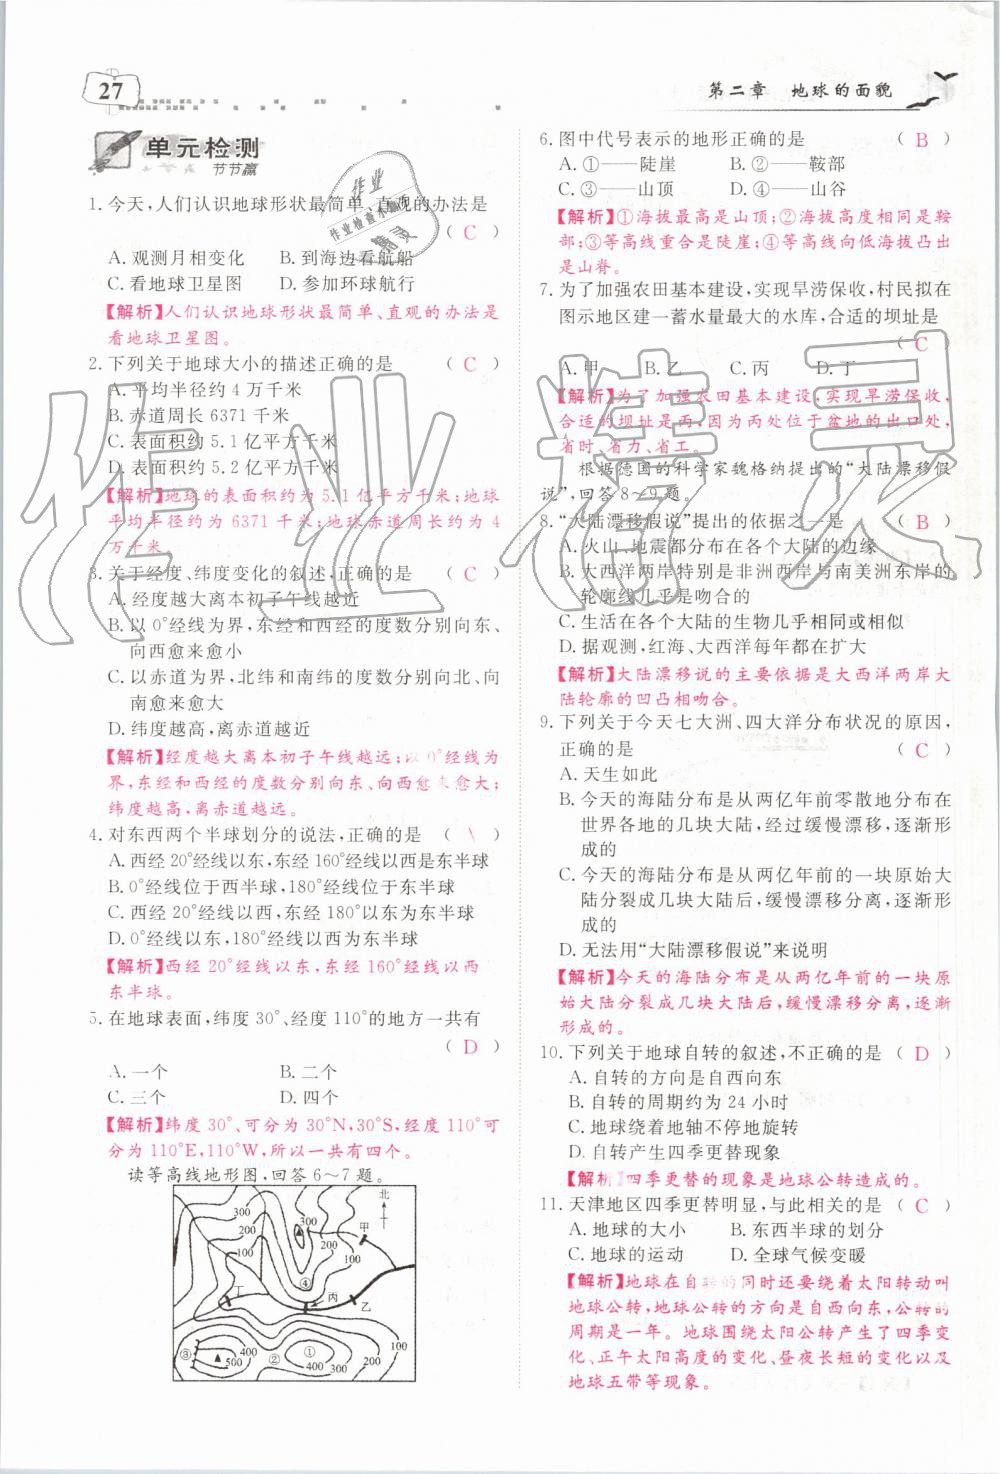 27
第二章 地球的面貌
单元检测
节节赢
1. 今天,人们认识地球形状最简单、直观的办法是
( C )
A. 观测月相变化 B. 到海边看航船
C. 看地球卫星图 D. 参加环球航行
【解析】人们认识地球形状最简单、直观的办法是
看地球卫星图。
2. 下列关于地球大小的描述正确的是 ( C )
A. 平均半径约 4 万千米
B. 赤道周长 6371 千米
C. 表面积约 5.1 亿平方千米
D. 表面积约 5.2 亿平方千米
【解析】地球的表面积约为5.1亿平方千米;地球
平均半径约为 6371 千米;地球赤道周长约为 4
万千米。
3. 关于经度、纬度变化的叙述,正确的是 ( C )
A. 经度越大离本初子午线越近
B. 以 0°经线为界,东经和西经的度数分别向东、
向西愈来愈小
C. 以赤道为界,北纬和南纬的度数分别向北、向
南愈来愈大
D. 纬度越高,离赤道越近
【解析】经度越大离本初子午线越远;以0°经线为
界,东经和西经的度数分别向东、向西愈来愈大;
纬度越高,离赤道越远。
4. 对东西两个半球划分的说法,正确的是 ( )
A. 西经 20°经线以东,东经 160°经线以西是东半球
B. 0°经线位于西半球,180°经线位于东半球
C. 西经 20°经线以西,东经 180°经线以东是东半球
D. 0°经线以东,180°经线以西为东半球
【解析】西经 20°经线以东,东经 160°经线以西
东半球。
5. 在地球表面,纬度 30°、经度 110°的地方一共有
( D )
A. 一个 B. 二个
C. 三个 D. 四个
【解析】纬度 30°、可分为 30°N、30°S,经度 110°可
分为 110°E、110°W,所以一共有四个。
读等高线地形图,回答 6～7 题。
北
300
200
100
300
200
100
甲
100
200
300
④
丁
丙
乙
③
500
400
300
②
①
400
300
6. 图中代号表示的地形正确的是 ( B )
A. ①——陡崖 B. ②——鞍部
C. ③——山顶 D. ④——山谷
【解析】①海拔最高是山顶;②海拔高度相同是鞍
部;③等高线重合是陡崖;④等高线向低海拔凸出
是山脊。
7. 为了加强农田基本建设,实现旱涝保收,村民拟在
图示地区建一蓄水量最大的水库,合适的坝址是
( C )
A. 甲 B. 乙 C. 丙 D. 丁
【解析】为了加强农田基本建设,实现旱涝保收,
合适的坝址是丙,因为丙处位于盆地的出口处,
省时、省力、省工。
根据德国的科学家魏格纳提出的“大陆漂移假
说”,回答 8～9 题。
8. “大陆漂移假说”提出的依据之一是 ( B )
A. 火山、地震都分布在各个大陆的边缘
B. 大西洋两岸特别是非洲西岸与南美洲东岸的
轮廓线几乎是吻合的
C. 生活在各个大陆的生物几乎相同或相似
D. 据观测,红海、大西洋每年都在扩大
【解析】大陆漂移说的主要依据是大西洋两岸大
陆轮廓的凹凸相吻合。
9. 下列关于今天七大洲、四大洋分布状况的原因,
正确的是 ( C )
A. 天生如此
B. 今天的海陆分布是从两亿年前零散地分布在
世界各地的几块大陆,经过缓慢漂移,逐渐形
成的
C. 今天的海陆分布是从两亿年前的一块原始大
陆分裂成几块大陆后,缓慢漂移分离,逐渐形
成的
D. 无法用“大陆漂移假说”来说明
【解析】今天的海陆分布是从两亿年前的一块原
始大陆分裂成几块大陆后,缓慢漂移分离,逐渐
形成的。
10. 下列关于地球自转的叙述,不正确的是 ( D )
A. 自转的方向是自西向东
B. 自转的周期约为 24 小时
C. 地球绕着地轴不停地旋转
D. 自转产生四季更替现象
【解析】四季更替的现象是地球公转造成的。
11. 天津地区四季更替明显,与此相关的是 ( C )
A. 地球的大小 B. 东西半球的划分
C. 地球的运动 D. 全球气候变暖
【解析】地球在自转的同时还要绕着太阳转动叫
地球公转,地球公转的方向是自西向东,公转的
周期是一年。地球围绕太阳公转产生了四季变
化、正午太阳高度的变化、昼夜长短的变化以及
地球五带等现象。
作业精灵
作业
作业检查小
精灵